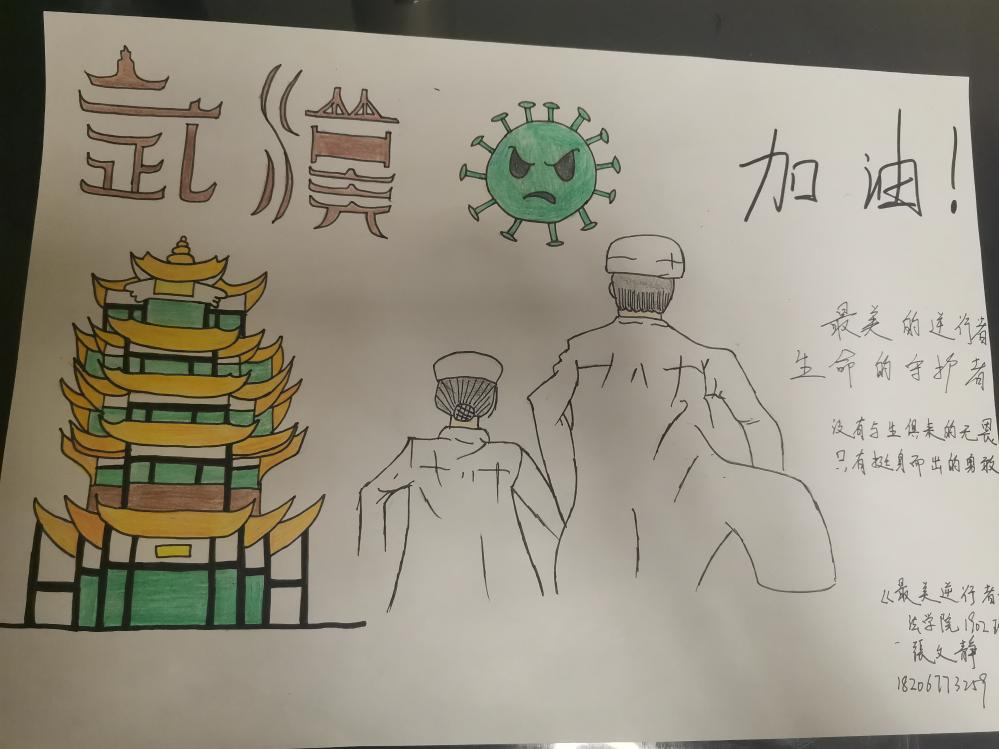 武漢 加油!
最美的逆行者
生命的守护者
没有与生俱来的无畏
只有挺身而出的勇敢
《最美逆行者
法学院1902
張文静
18206773259